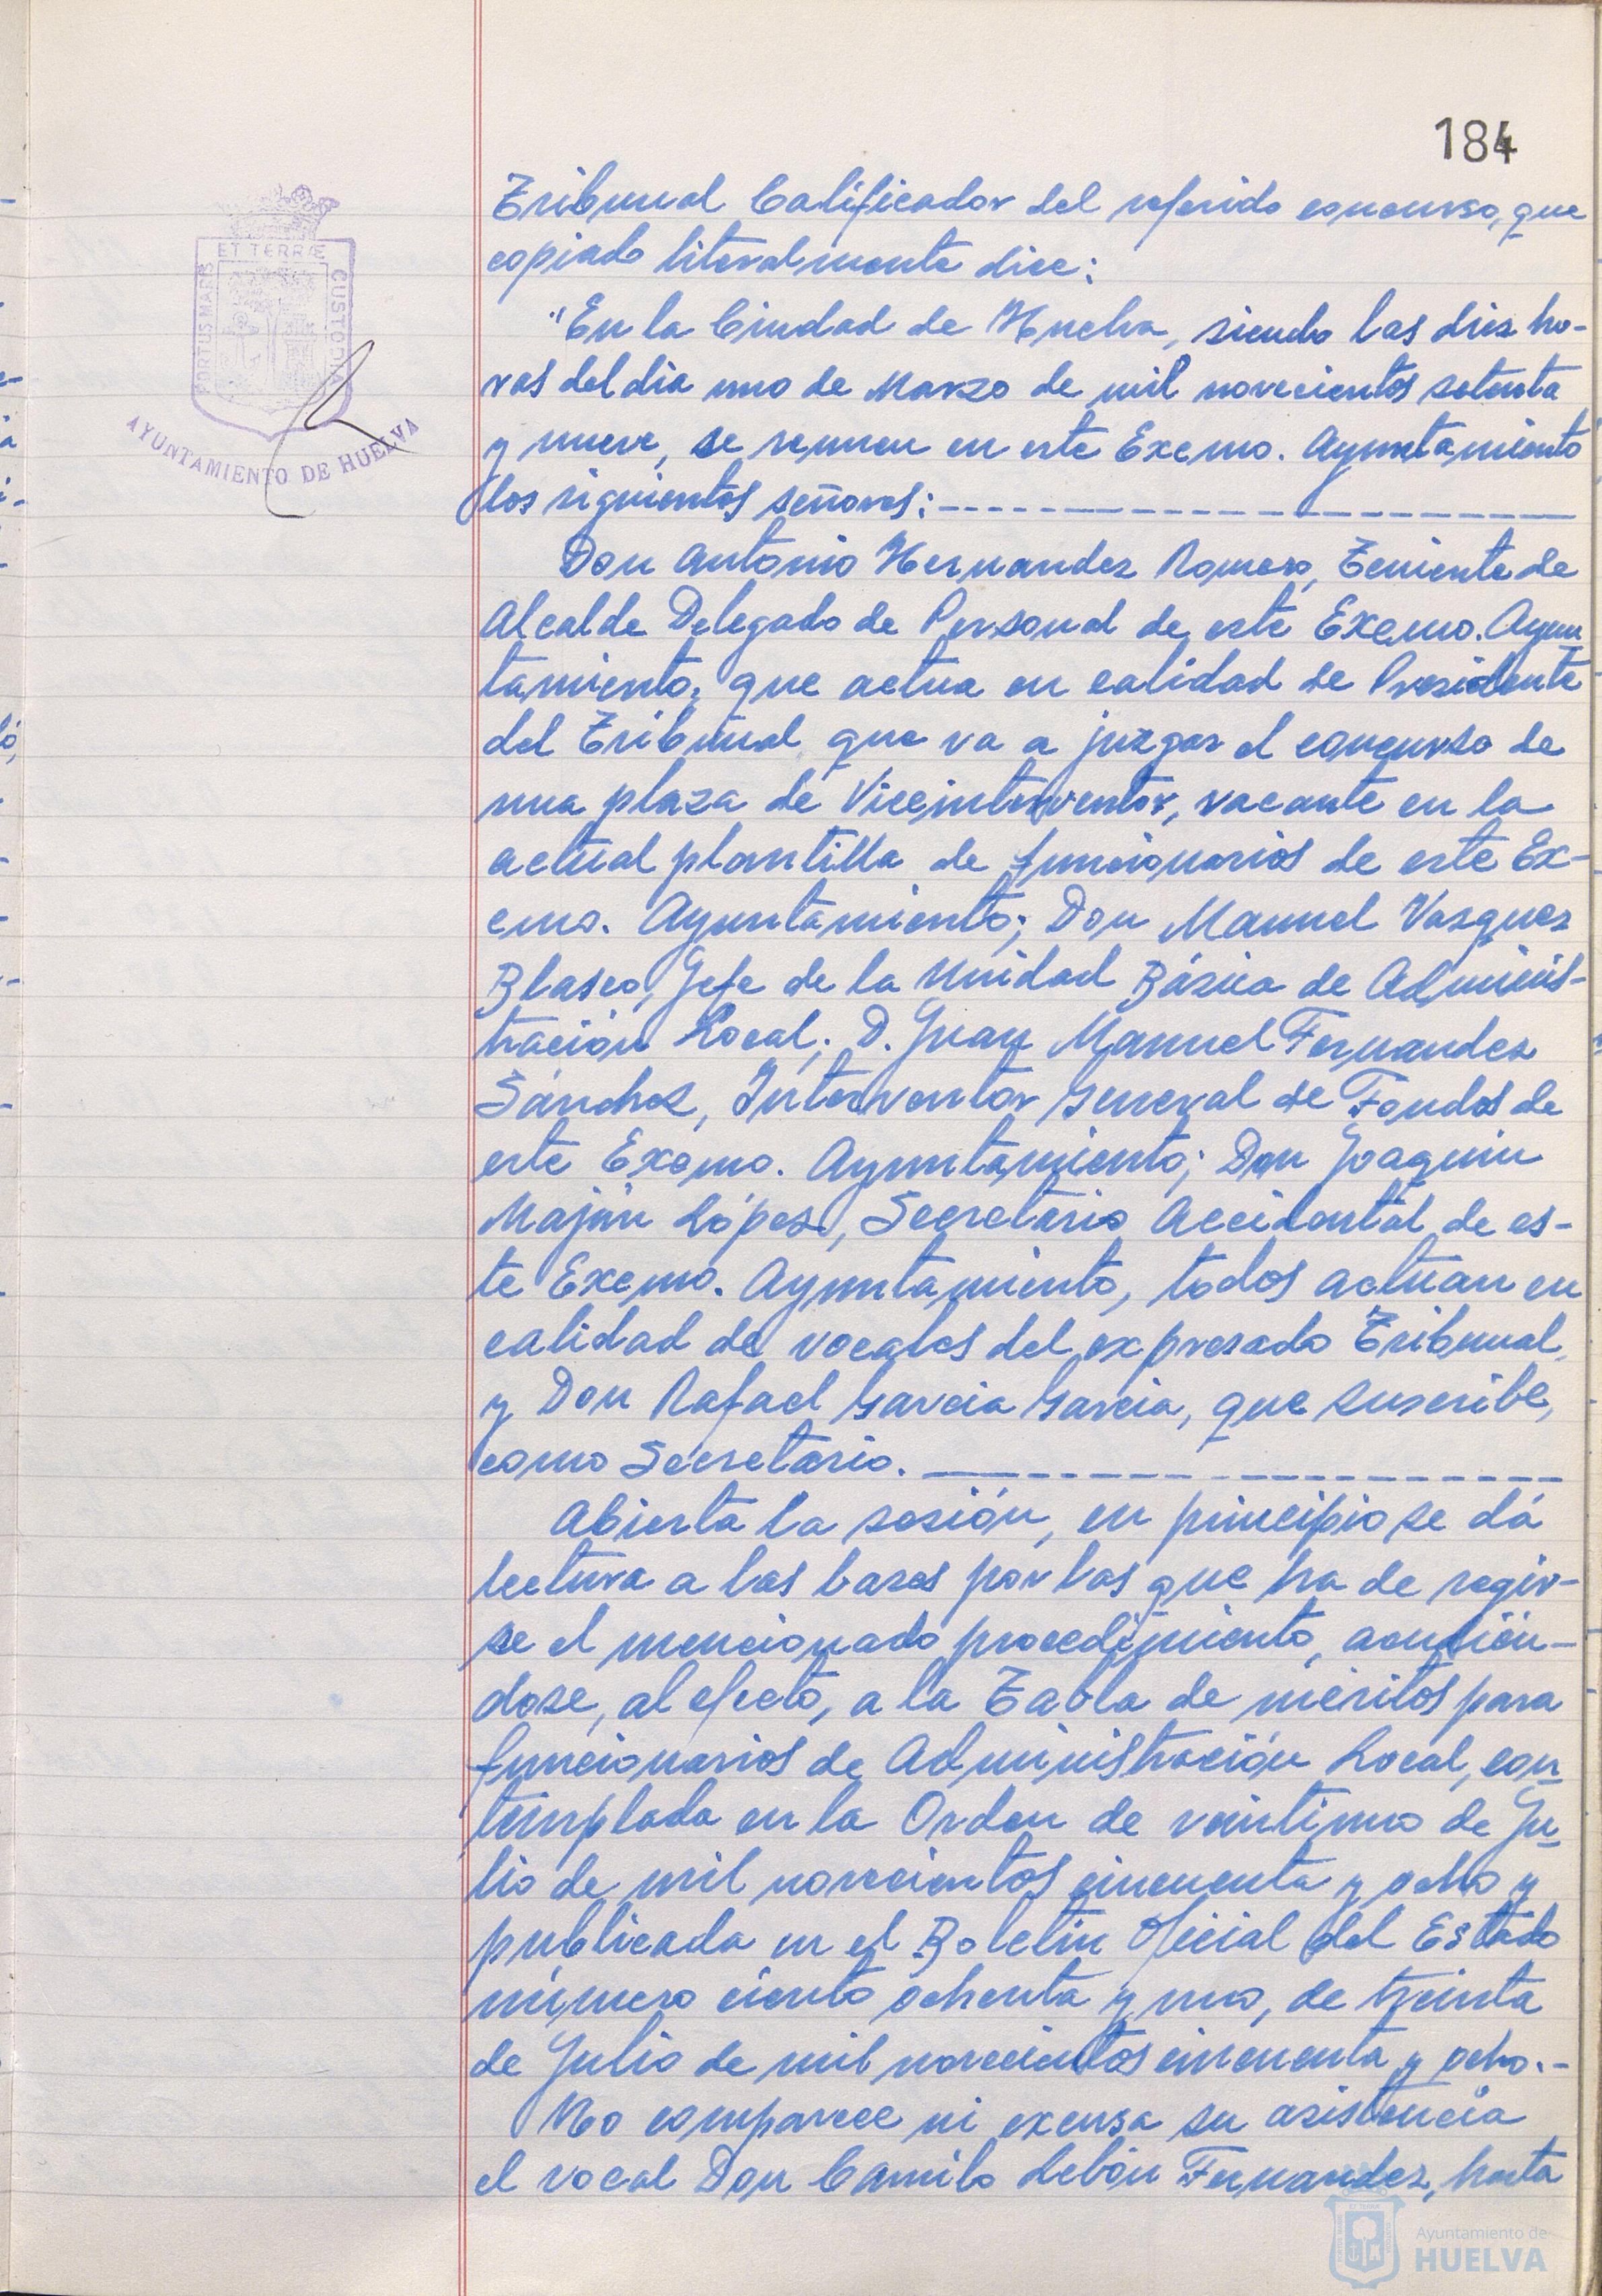 184
Tribunal Calificador del referido concurso, que
copiado literalmente dice:
"En la Ciudad de Huelva, siendo las diez ho-
ras del dia uno de Marzo de mil novecientos setenta
y nueve, se reunen en este Excmo. Ayuntamiento
los siguientes señores:
Don Antonio Hernandez Romero, Teniente de
Alcalde Delegado de Personal de este Excmo. Ayun
tamiento, que actua en calidad de Presidente
del Tribunal que va a juzgar el concurso de
una plaza de Viceinterventor, vacante en la
actual plantilla de funcionarios de este Ex-
cmo. Ayuntamiento; Don Manuel Vazquez
Blasco, Jefe de la Unidad Básica de Adminis-
tración Local; D. Juan Manuel Fernandez
Sánchez, Interventor General de Fondos de
este Excmo. Ayuntamiento; Don Joaquin
Majún López, Secretario Accidental de es-
te Excmo. Ayuntamiento, todos actúan en
calidad de vocales del expresado Tribunal,
y Don Rafael Garcia Garcia, que suscribe,
como Secretario.
Abierta la sesión, en principio se dá
lectura a las bases por las que ha de regir-
se el mencionado procedimiento, acudién-
dose, al efecto, a la Tabla de méritos para
funcionarios de Administración Local, con
templada en la Orden de veintiuno de Ju
lio de mil novecientos cincuenta y ocho y
publicada en el Boletín Oficial del Estado
número ciento ochenta y uno, de treinta
de Julio de mil novecientos cincuenta y ocho.-
No comparece ni excusa su asistencia
el vocal Don Camilo Lebón Fernandez, hasta
PORTUS MARIS
ET TERRÆ
CUSTODIA
AYUNTAMIENTO DE HUELVA
Ayuntamiento de
HUELVA